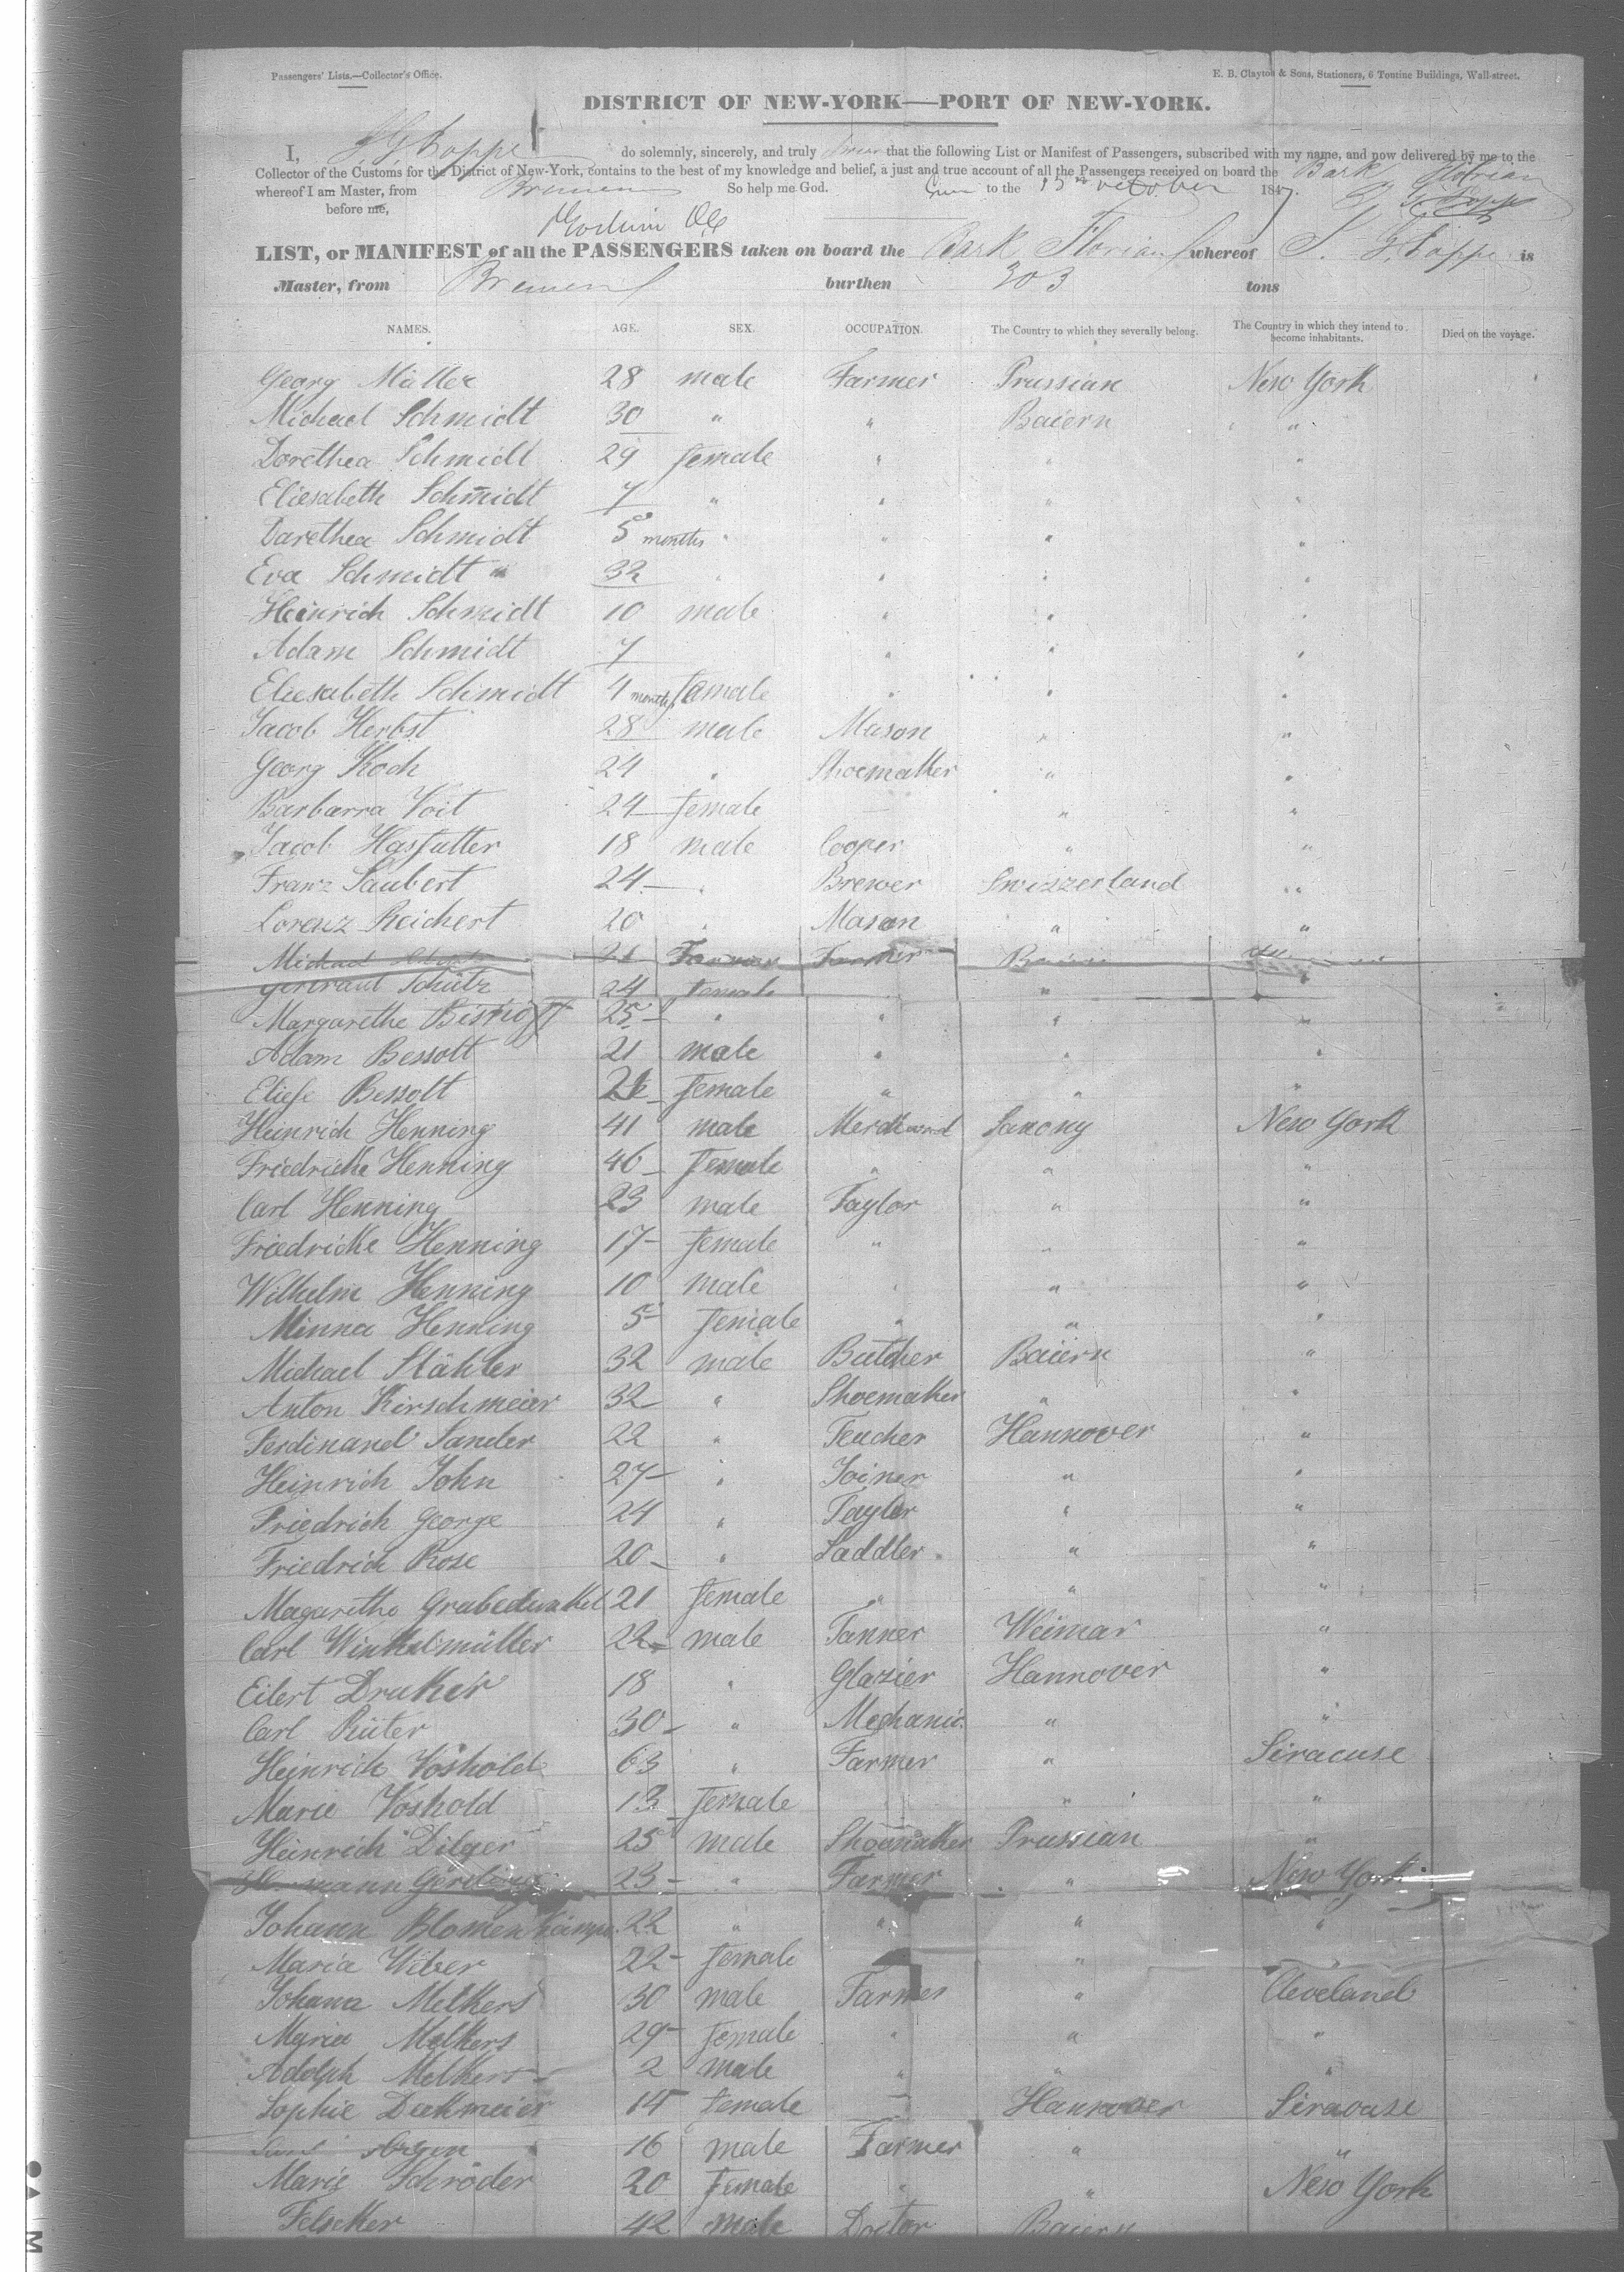 Passengers' Lists.—Collector's Office.
E. B. Clayton & Sons, Stationers, 6 Tontine Buildings, Wall-street.
DISTRICT OF NEW-YORK—PORT OF NEW-YORK.
I, do solemnly, sincerely, and truly that the following List or Manifest of Passengers, subscribed with my name, and now delivered by me to the
Collector of the Customs for the District of New-York, contains to the best of my knowledge and belief, a just and true account of all the Passengers received on board the Bark Florian
whereof I am Master, from Bremen So help me God. to the 13th October 1847.
before me,
LIST, or MANIFEST of all the PASSENGERS taken on board the Bark Florian whereof is
Master, from Bremen burthen 303 tons
NAMES. AGE. SEX. OCCUPATION. The Country to which they severally belong. The Country in which they intend to become inhabitants. Died on the voyage.
Georg Müller 28 male Farmer Prussian New York
Michael Schmidt 30 " " Baiern "
Dorethea Schmidt 29 female " " "
Eliesabeth Schmidt 7 " " " "
Darethea Schmidt 5 months " " " "
Eva Schmidt 32 " " " "
Heinrich Schmidt 10 male " " "
Adam Schmidt 7 " " "
Eliesabeth Schmidt 4 months female " " "
Jacob Herbst 28 male Mason " "
Georg Koch 24 " Shoemakker " "
Barbarra Voit 24 female — " "
Jacob Hasfutter 18 male Cooper " "
Franz Saubert 24 " Brewer Swizzerland "
Lorenz Reichert 20 " Mason " "
Michael 21 Farmer Farmer
Gertraut Schütz 24 female "
Margarethe Bishoff 25 " " " "
Adam Bessolt 21 male " " "
Eliese Bessolt female " " "
Heinrich Henning 41 male Saxony New York
Friedricke Henning 46 female " " "
Carl Henning 23 male Taylor " "
Friedricke Henning 17 female " " "
Wilhelm Henning 10 male " " "
Minna Henning 5 female " " "
Michael Stähler 32 male Butcher Baiern "
Anton Kirschmeier 32 " Shoemakker " "
Ferdinand Sander 22 " Teacher Hannover "
Heinrich John 27 " Joiner " "
Friedrich George 24 " Taylor " "
Friedrich Rose 20 " Saddler " "
Magarethe 21 female " " "
Carl Winkelmüller 22 male Tanner Weimar "
Eilert Druker 18 " Glazier Hannover "
Carl Rüter 30 " Mechanic. " "
Heinrich Voshold 63 " Farmer " Siracuse
Marie Voshold 13 female " "
Heinrich Dilger 25 male Shoemakker Prussian "
Gerding 23 " Farmer " New York
Johann Blomenkamp 22 " " " "
Maria Weber 22 female " "
Johann Melkers 30 male Farmer " Cleveland
Maria Melkers 29 female " " "
Adolph Melkers 2 male " " "
Sophie Dekmeier 14 female — Hannover Siracuse
16 male Farmer " "
Marie Schröder 20 female " " New York
Felseker 42 male Doctor Baiern